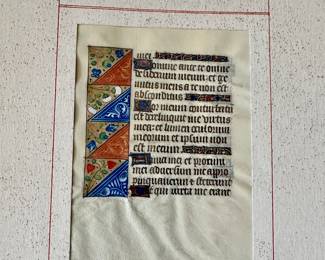 mei
Domine ante te omne
desiderium meum et ge
mitus meus a te non est
absconditus
Cor meum conturbatū
est dereliquit me virtus
mea et lumen oculorum
meorum et ipsum non
est mecum
Amici mei et proximi
mei adversum me appro
pinquaverunt et steterunt
Et qui iuxta me erant